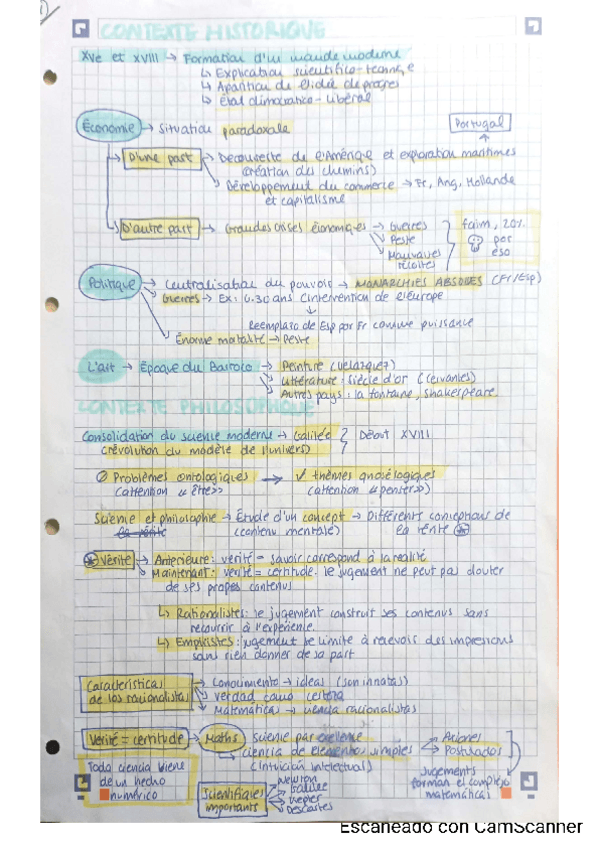 CONTEXTE HISTORIQUE
XVe et XVIII → Formation d'un monde moderne
↳ Explication scientifico-techni e
↳ Aparition de l'idée de progrès
↳ État démocratico-libéral
Économie → Situation paradoxale
Portugal
D'une part → Decouverte de l'Amérique et exploration maritimes
(création des chemins)
Développement du commerce → Fr, Ang, Hollande
et capitalisme
D'autre part → Grandes crises économiques → Guerres
Peste
Mauvaises
récoltes
faim, 20%
por
eso
Politique → Centralisation du pouvoir → MONARCHIES ABSOLUES (Fr/Esp)
Guerres → Ex: G.30 ans (intervention de l'Europe
↓
Reemplazo de Esp por Fr comme puissance
Énorme mortalité → Peste
L'art → Époque du Barroco → Peinture (Velázquez)
Littérature: siècle d'or (Cervantes)
Autres pays: la fontaine, Shakespeare.
CONTEXTE PHILOSOPHIQUE
Consolidation du science moderne → Galilée
(révolution du modèle de l'univers)
Début XVIII
Problèmes ontologiques → ✓ thèmes gnoséologiques
(attention « être») (attention « penser»)
Science et philosophie → Étude d'un concept → Différents conceptions de
la vérité (contenu mentale) la vérité
Vérité → Antérieure: vérité = savoir correspond à la realité
Maintenant: vérité = certitude. le jugement ne peut pas douter
de ses propes contenus
↳ Rationalistes: le jugement construit ses contenus sans
recourrir à l'expérience.
↳ Empiristes: jugement se limite à recevoir des impressions
sans rien donner de sa part
Características
de los racionalistas
→ Conocimiento → ideas (son innatas)
Verdad como certeza
Matemáticas → ciencia racionalistas
Vérité = certitude → Maths
Science par excellence
ciencia de elementos simples
(intuición intelectual)
Axiones
Postulados
Jugements
forman el complejo
matemáticas
Toda ciencia viene
de un hecho
numérico
Scientifiques
importants
Newton
Galilée
Kepler
Descartes
Escaneado con CamScanner